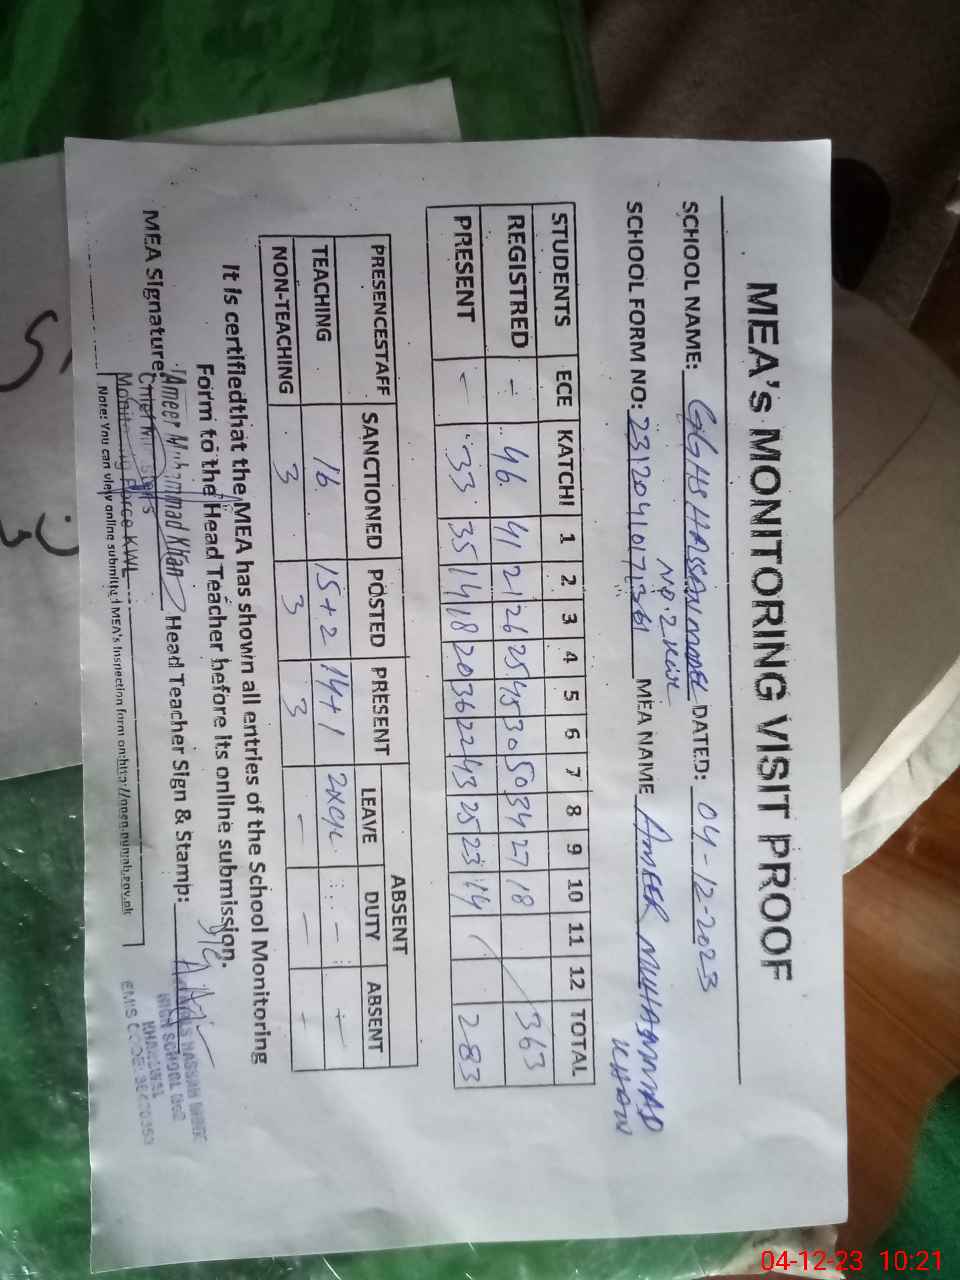 MEA's MONITORING VISIT PROOF
SCHOOL NAME: GGHS HASSAN MODEL DATED: 04-12-2023
No. 2 KWL
SCHOOL FORM NO: MEA NAME AMEER MUHAMMAD
KHAN
STUDENTS ECE KATCHI 1 2 3 4 5 6 7 8 9 10 11 12 TOTAL
REGISTRED - 46 41 21 26 25 45 30 50 34 27 18 363
PRESENT - 33 35 14 18 20 36 22 43 25 23 14 283
PRESENCESTAFF SANCTIONED POSTED PRESENT ABSENT
LEAVE DUTY ABSENT
TEACHING 16 15+2 14+1 - -
NON-TEACHING 3 3 3 - - -
It is certifiedthat the MEA has shown all entries of the School Monitoring
Form to the Head Teacher before its online submission.
MEA Signature: Ameer Muhammad Khan Head Teacher Sign & Stamp:
Monitoring Force KWL
HIGH SCHOOL NO2
KHANEWAL
EMIS CODE:
Note: You can view online submitted MEA's Inspection form on:http://open.punjab.gov.pk
04-12-23 10:21